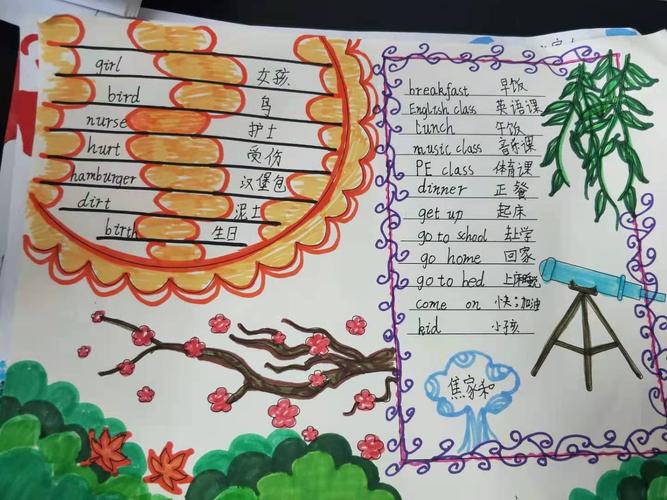 girl 女孩
bird 鸟
nurse 护士
hurt 受伤
hamburger 汉堡包
dirt 泥土
birth 生日
breakfast 早饭
English class 英语课
lunch 午饭
music class 音乐课
PE class 体育课
dinner 正餐
get up 起床
go to school 去上学
go home 回家
go to bed 上床睡觉
come on 快;加油
kid 小孩
焦家和